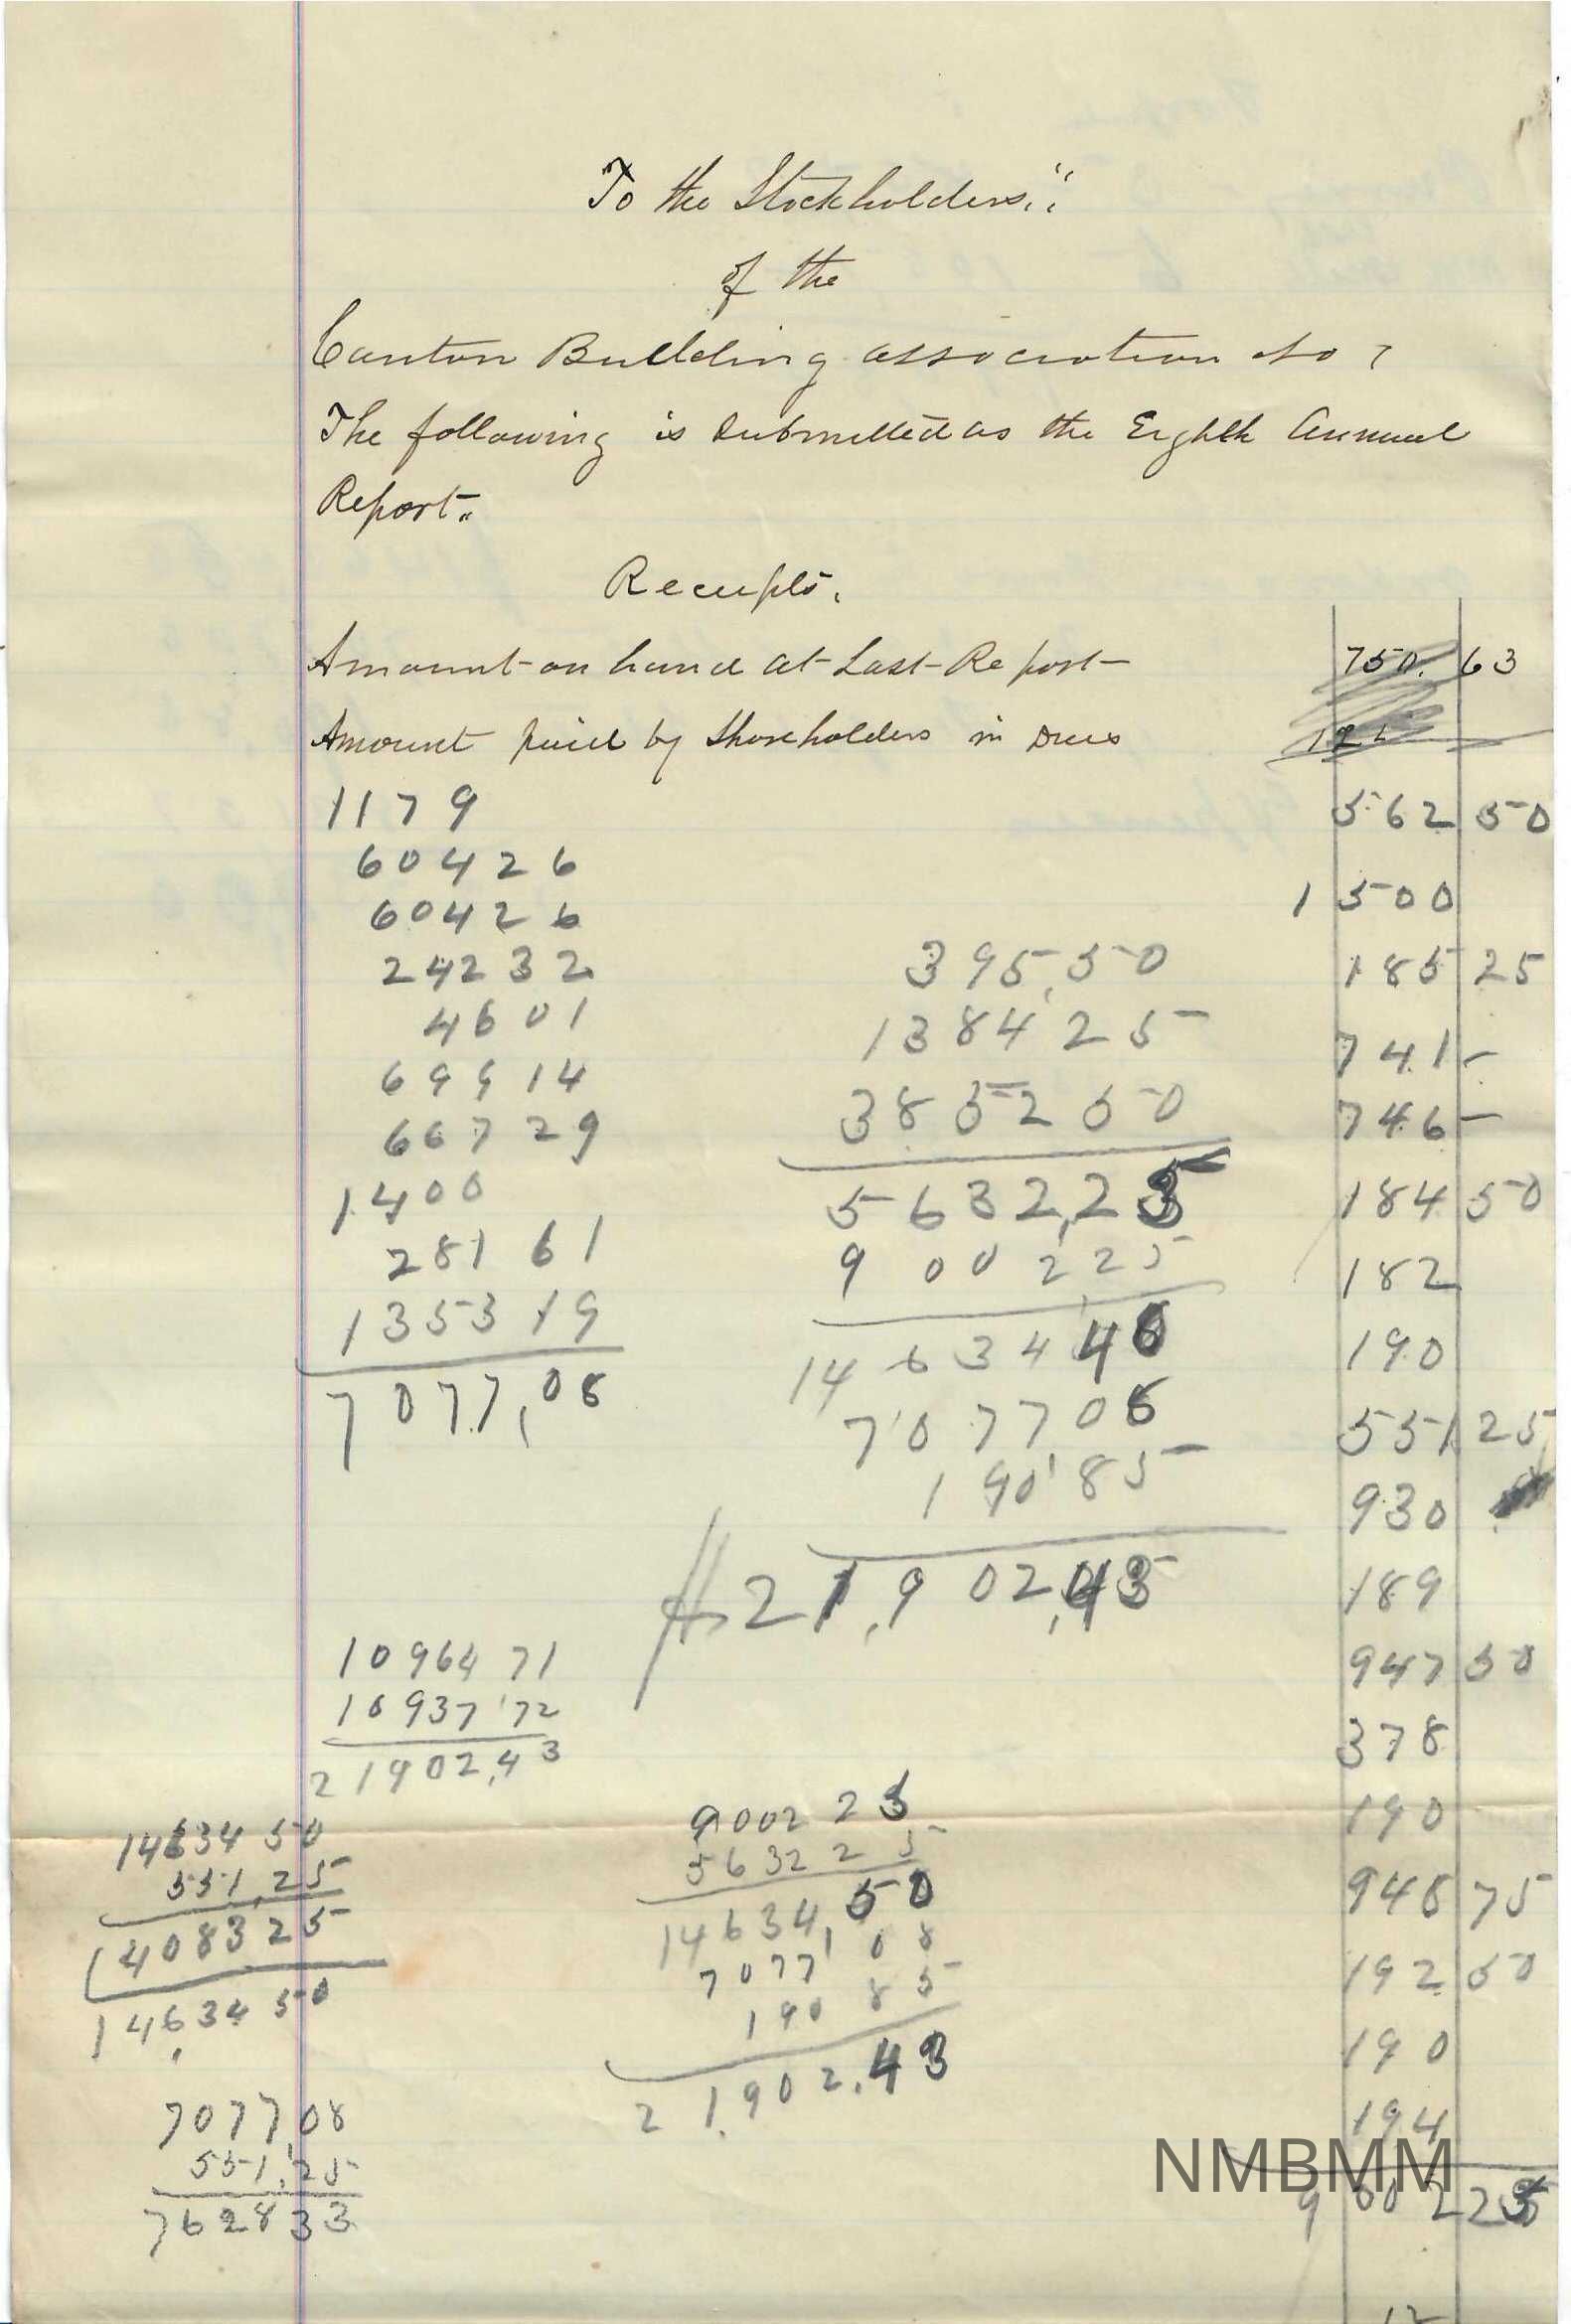 To the Stockholders
of the
Canton Building association No 7
The following is Submitted as the Eighth Annual
Report.
Receipts.
Amount on hand at Last Report 750. 63
Amount paid by Shareholders in Dues
1179
604 26
604 26
242 32
46 01
699 14
667 29
1400
281 61
1353 19
7077,08
395,50
1384 25
3852 50
5632,25
9002 25
14634
7077 08
190 85
21,902,43
562 50
1 500
185 25
741 –
746 –
184 50
182
190
551 25
930
189
947 50
378
190
948 75
192 50
190
194
9 002 25
12
10964 71
10937 72
21902,43
14634 50
551,25
14083 25
14,634 50
7077,08
551,25
7628 33
9002 25
5632 25
14634,50
7077 08
190 85
21,902.43
NMBMM